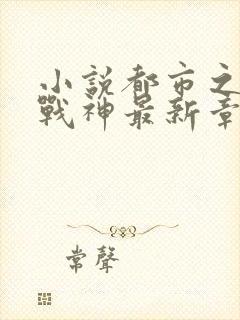 小說都市之
戰神最新章
常聲